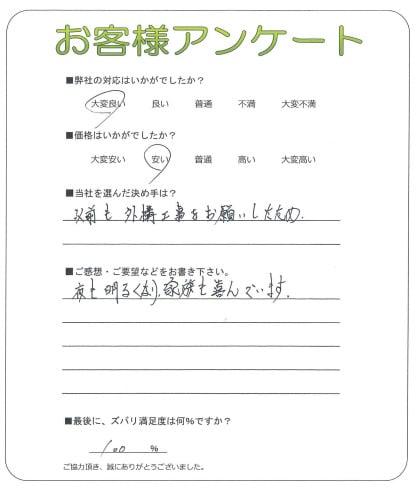 お客様アンケート
■弊社の対応はいかがでしたか？
大変良い 良い 普通 不満 大変不満
■価格はいかがでしたか？
大変安い 安い 普通 高い 大変高い
■当社を選んだ決め手は？
以前も外構工事をお願いしたため.
■ご感想・ご要望などをお書き下さい。
夜も明るくなり、家族も喜んでいます.
■最後に、ズバリ満足度は何%ですか？
100 %
ご協力頂き、誠にありがとうございました。